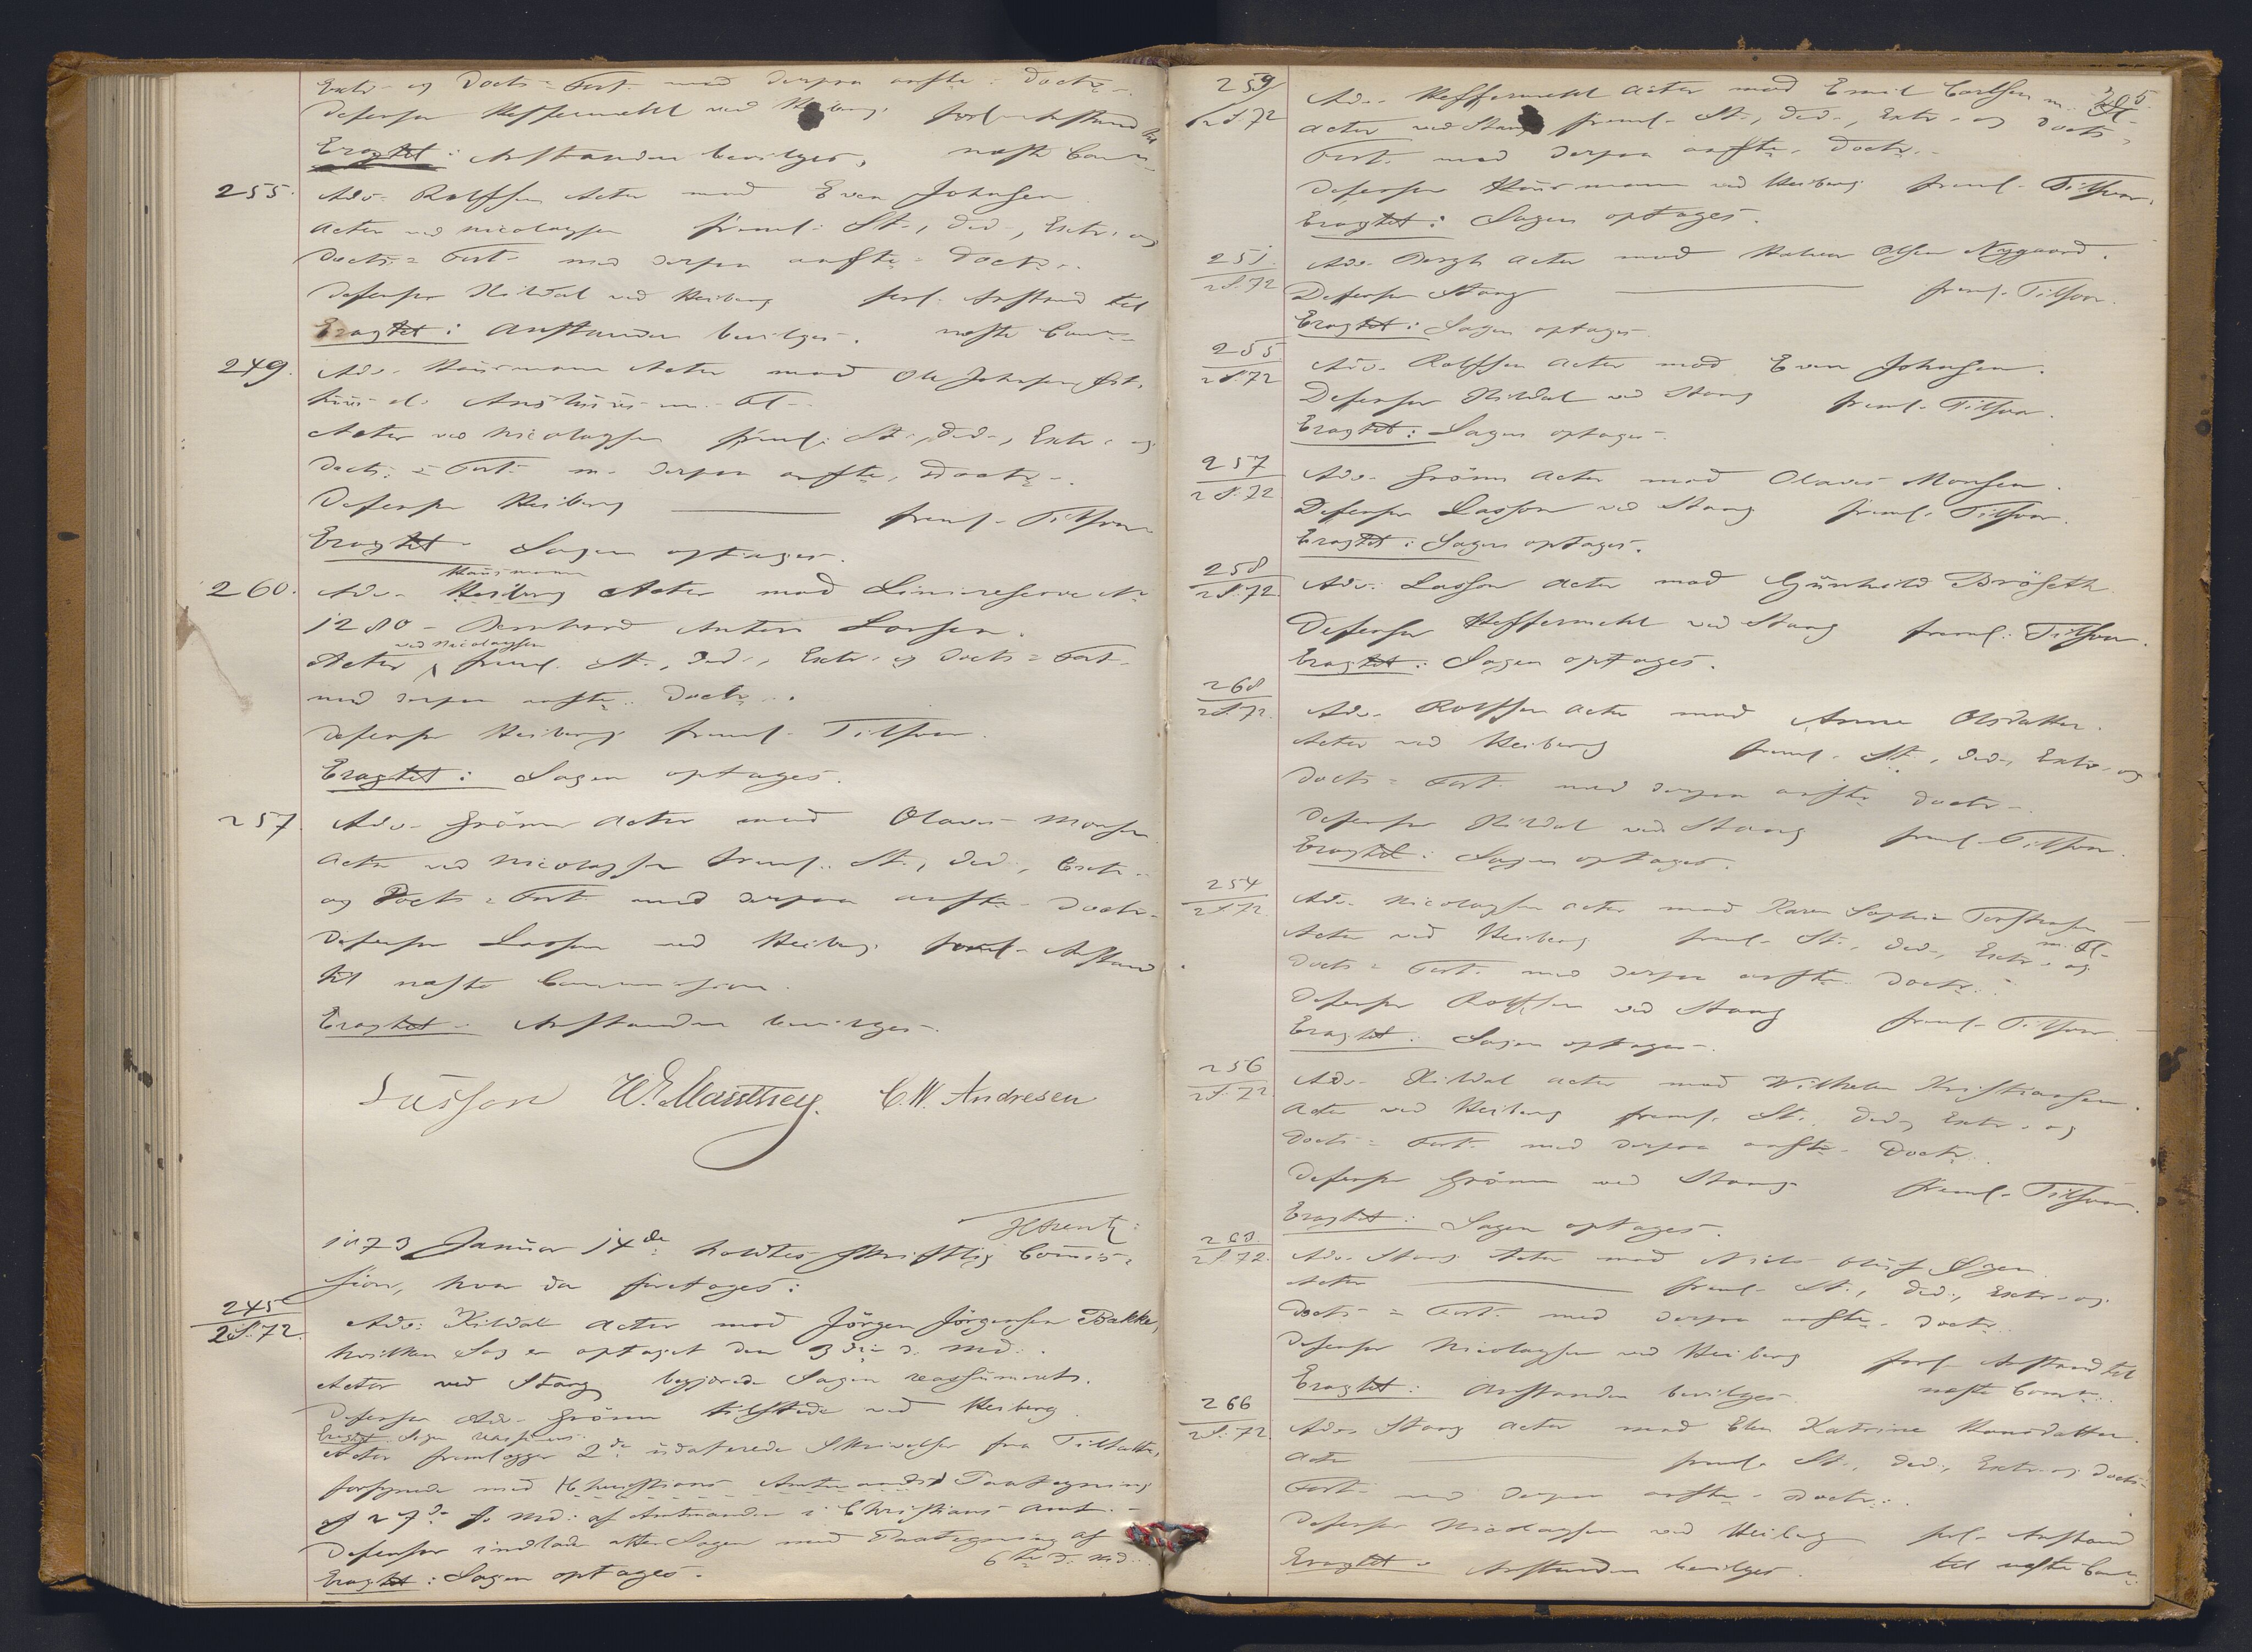 Extr. og Docts = Fort. med derpaa anfte. Doctr.
Defensor Heffermehl ved Heiberg forl. Anstand til
Eragtet: Anstanden bevilges, næste Comm.
255. Adv. Rolffsen Actor mod Even Johnsen
Actor ved Nicolaysen freml. St., Ded., Extr. og
Docts = Fort. med derpaa anfte. Doctr.
Defensor Hildal ved Heiberg forl. Anstand til
Eragtet: Anstanden bevilges. næste Comm.
249. Adv. Haürmann Actor mod Ole Johnsen
m. Fl.
Actor ved Nicolaysen freml. St., Ded., Extr. og
Docts = Fort. m. derpaa anfte. Doctr.
Defensor Heiberg freml. Tilsvar
Eragtet Sagen optages.
Haürmann
260. Adv. Heiberg Actor mod Liniereserve No
1280 - Bernhard Anton Larsen.
ved Nicolaysen
Actor freml. St., Ded., Extr. og Docts = Fort.
med derpaa anfte. Doctr.
Defensor Heiberg freml. Tilsvar.
Eragtet: Sagen optages.
257. Adv. Grönn Actor mod Olaves Monsen
Actor ved Nicolaysen freml. St., Ded., Extr.
og Docts = Fort. med derpaa anfte. Doctr.
Defensor Lasson ved Heiberg forl. Anstand
til næste Commission.
Eragtet. Anstanden bevilges.
Lasson W. E. Manthey. C. W. Andresen
1873 Januar 14de holdtes skriftlig Commis-
sion, hvor da foretages:
245
2S.72. Adv. Hildal Actor mod Jörgen Jörgensen Bakke,
hvilken Sag er optaget den 3die d. Md.
Actor ved Stang begjærede Sagen reassumeret.
Defensor Adv. Grönn tilstede ved Heiberg.
Eragtet. Sagen reassumeres.
Actor fremlægger 2de udaterede Skrivelser fra Tiltalte,
forsynede med Paategning
af 27de f. Md. af Amtmanden i Christians Amt.
Defensor indlod atter Sagen med Paategning af
6te d. Md.
Eragtet: Sagen optages.
205.
259
2S.72 Adv. Heffermehl Actor mod Emil Carlsen m. Fl.
Actor ved Stang freml. St., Ded., Extr. og Docts
Fort. med derpaa anfte. Doctr.
Defensor Haürmann ved Heiberg freml. Tilsvar.
Eragtet: Sagen optages.
251.
2S.72 Adv. Bergh Actor mod Halvor Olsen Nygaard.
Defensor Stang freml. Tilsvar.
Eragtet: Sagen optages.
255
2S.72 Adv. Rolffsen Actor mod Even Johnsen.
Defensor Hildal ved Stang freml. Tilsvar.
Eragtet: Sagen optages.
257
2S.72 Adv. Grönn Actor mod Olaves Monsen.
Defensor Lasson ved Stang freml. Tilsvar.
Eragtet: Sagen optages.
258
2S.72 Adv. Lasson Actor mod Gunhild Bröseth
Defensor Heffermehl ved Stang freml. Tilsvar.
Eragtet: Sagen optages.
268
2S.72. Adv. Rolffsen Actor mod Anne Olsdatter.
Actor ved Heiberg freml. St., Ded., Extr. og
Docts = Fort. med derpaa anfte Doctr.
Defensor Hildal ved Stang freml. Tilsvar.
Eragtet: Sagen optages.
254
2S.72 Adv. Nicolaysen Actor mod Karen Sophie Torstensen
m. Fl.
Actor ved Heiberg freml. St., Ded., Extr. og
Docts = Fort. med derpaa anfte. Doctr.
Defensor Rolffsen ved Stang freml. Tilsvar.
Eragtet: Sagen optages.
256
2S.72 Adv. Hildal Actor mod Wilhelm Kristiansen.
Actor ved Heiberg freml. St., Ded., Extr. og
Docts = Fort. med derpaa anfte. Doctr.
Defensor Grönn ved Stang freml. Tilsvar.
Eragtet: Sagen optages.
263.
2S.72. Adv. Stang Actor mod Niels Oluf
Actor freml. St., Ded., Extr. og
Docts = Fort. med derpaa anfte. Doctr.
Defensor Nicolaysen ved Heiberg forl. Anstand til
Eragtet: Anstanden bevilges. næste Comm.
266
2S.72. Adv. Stang Actor mod Ellen Katrine Hansdatter.
Actor freml. St., Ded., Extr. og Docts
Fort. med derpaa anfte. Doctr.
Defensor Nicolaysen ved Heiberg forl. Anstand
Eragtet: Anstanden bevilges. til næste Com.